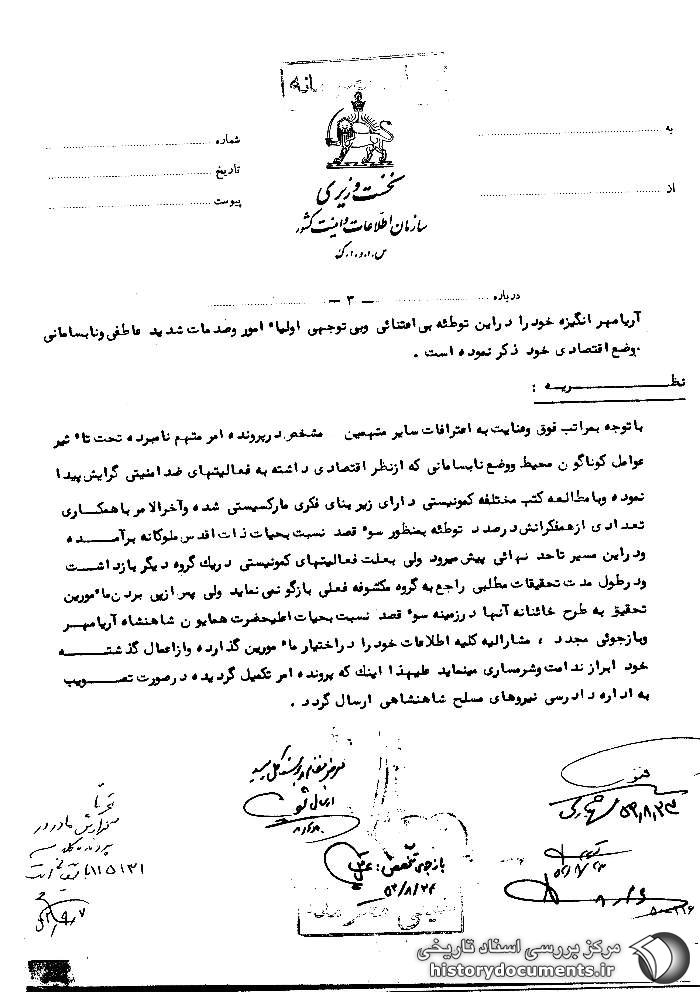 نخست وزیری
سازمان اطلاعات و امنیت کشور
س.ا.و.ا.ک
به
از
شماره
تاریخ
پیوست
درباره
ـ ۳ ـ
آریامهر انگیزه خود را در این توطئه بی اعتنائی وبی توجهی اولیاء امور وصدمات شدید عاطفی ونابسامانی
وضع اقتصادی خود ذکر نموده است .
نظریه :
با توجه بمراتب فوق وعنایت به اعترافات سایر متهمین مشخص در پرونده امر متهم نامبرده تحت تاء ثیر
عوامل گوناگون محیط ووضع نابسامانی که ازنظر اقتصادی داشته به فعالیتهای ضد امنیتی گرایش پیدا
نموده وبا مطالعه کتب مختلفه کمونیستی دارای زیر بنای فکری مارکسیستی شده وآخرالا مر با همکاری
تعدادی از همفکرانش در صدد توطئه بمنظور سوء قصد نسبت بحیات ذات اقدس ملوکانه برآمده
ودر این مسیر تاحد نهائی پیش میرود ولی بعلت فعالیتهای کمونیستی در یک گروه دیگر بازداشت
ودر طول مدت تحقیقات مطلبی راجع به گروه مکشوفه فعلی بازگو نمی نماید ولی پس از پی بردن ماءمورین
تحقیق به طرح خائنانه آنها در زمینه سوء قصد نسبت بحیات اعلیحضرت همایون شاهنشاه آریامهر
وبازجوئی مجدد ، مشارالیه کلیه اطلاعات خود را در اختیار ماء مورین گذارده وازاعمال گذشته
خود ابراز ندامت وشرمساری مینماید علیهذا اینک که پرونده امر تکمیل گردیده در صورت تصویب
به اداره دادرسی نیروهای مسلح شاهنشاهی ارسال گردد .
بازجوی تخصصی :
۵۲/۸/۲۴
مرکز بررسی اسناد تاریخی
historydocuments.ir